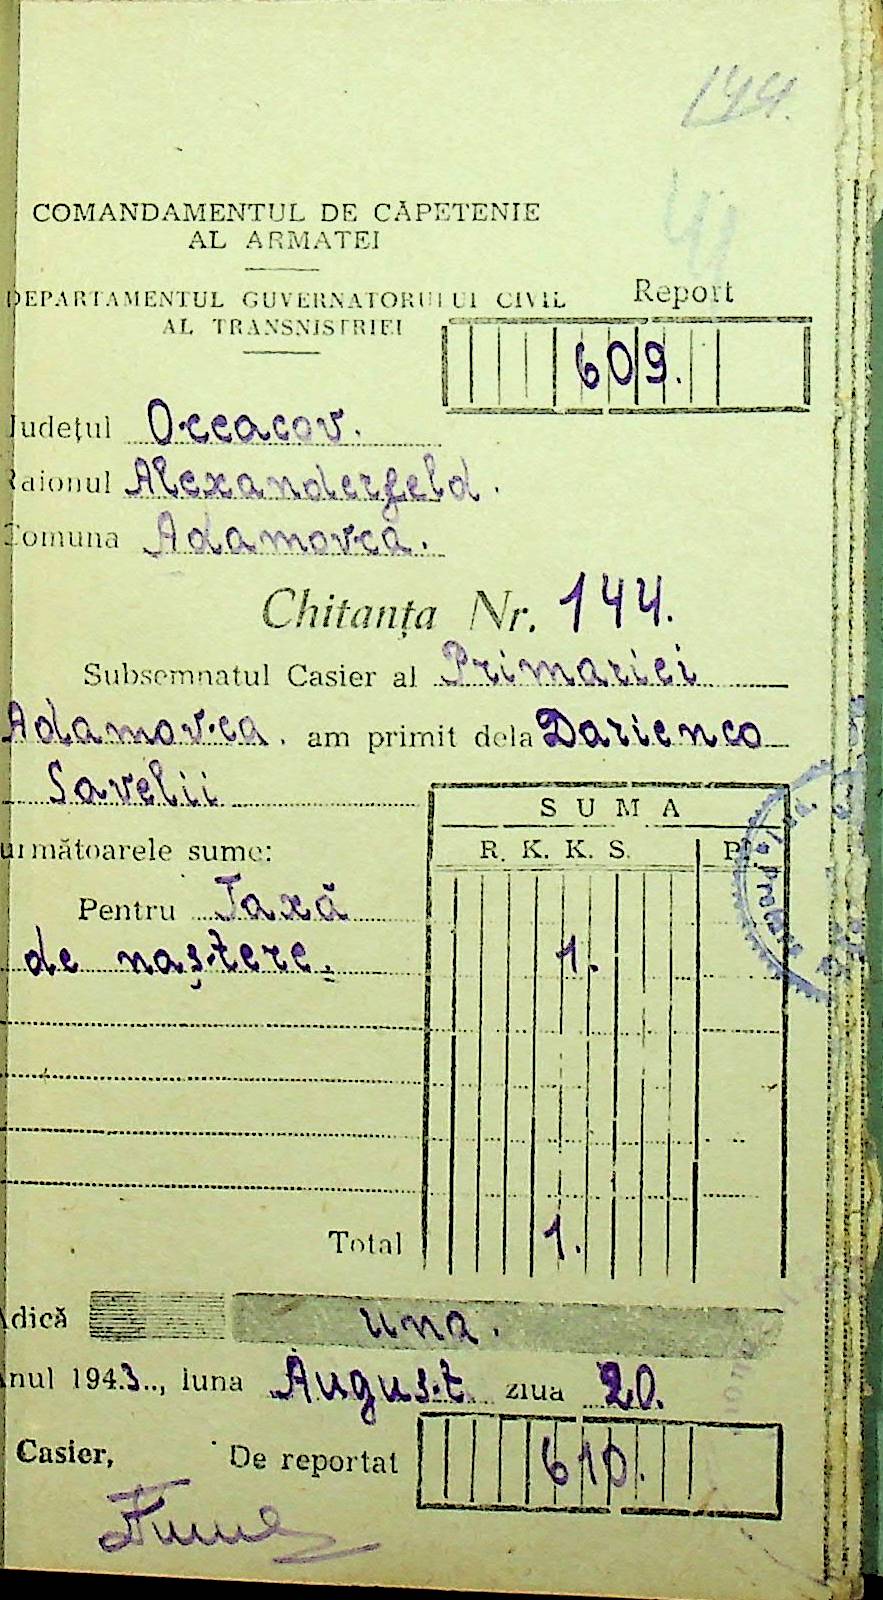 144.
COMANDAMENTUL DE CĂPETENIE
AL ARMATEI
DEPARTAMENTUL GUVERNATORULUI CIVIL
AL TRANSNISTRIEI
Report
609.
Județul Oceacov.
Raionul Alexanderfeld.
Comuna Adamovca.
Chitanța Nr. 144.
Subsemnatul Casier al Primariei
Adamovca. am primit dela Darienco
Savelii
următoarele sume:
SUMA
R. K. K. S. P.
Pentru Taxă
de naștere. 1.
Total 1.
Adică una.
Anul 1943., luna August ziua 20.
Casier, De reportat 610.